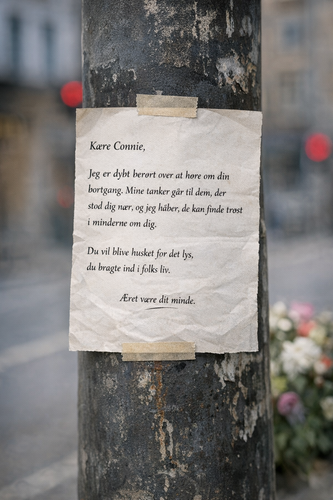 Kære Connie,
Jeg er dybt berørt over at høre om din
bortgang. Mine tanker går til dem, der
stod dig nær, og jeg håber, de kan finde trøst
i minderne om dig.
Du vil blive husket for det lys,
du bragte ind i folks liv.
Æret være dit minde.